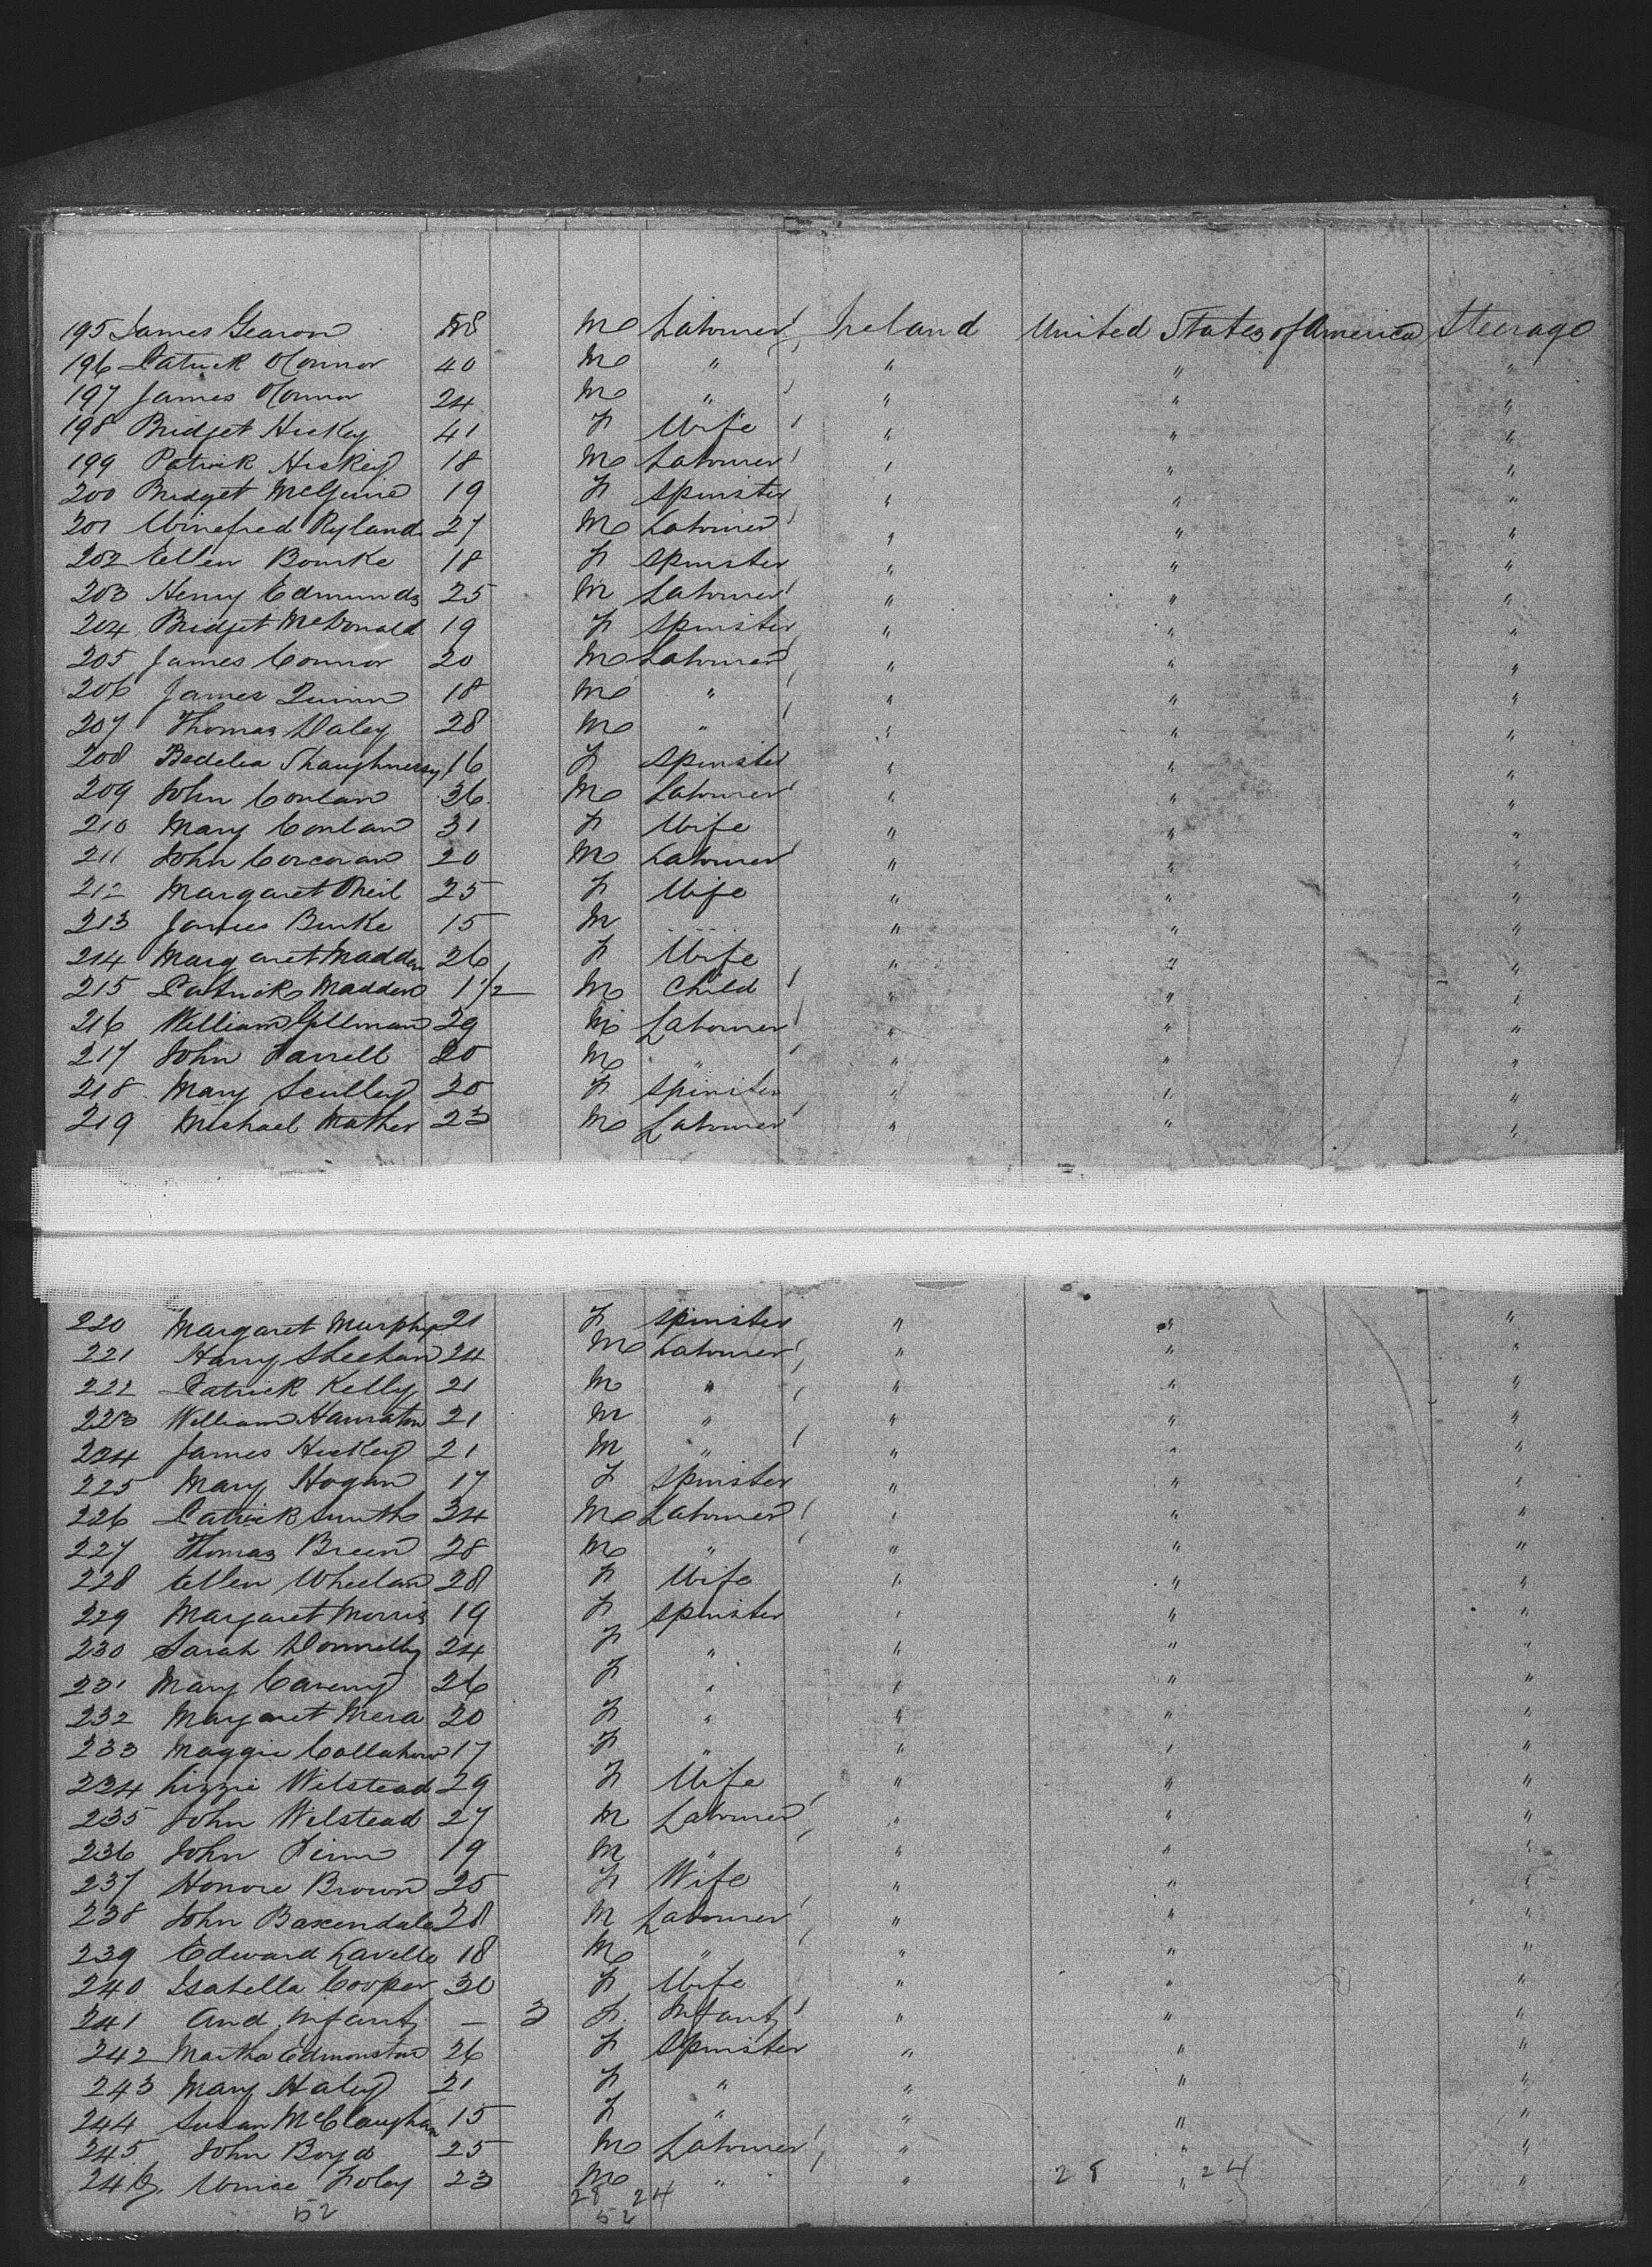 195 James Gearon M Labourer Ireland United States of America Steerage
196 Patrick OConnor 40 M " " " "
197 James OConnor 24 M " " " "
198 Bridget Hickey 41 F Wife " " "
199 Patrick Hickey 18 M Labourer " " "
200 Bridget McGuire 19 F Spinster " " "
201 Winefred Ryland 27 M Labourer " " "
202 Ellen Bourke 18 F Spinster " " "
203 Henry Edmunds 25 M Labourer " " "
204 Bridget McDonald 19 F Spinster " " "
205 James Connor 20 M Labourer " " "
206 James Quinn 18 M " " " "
207 Thomas Daley 28 M " " " "
208 Bedelia Shaughnessy 16 F Spinster " " "
209 John Conlan 36 M Labourer " " "
210 Mary Conlan 31 F Wife " " "
211 John Corcoran 20 M Labourer " " "
212 Margaret ONeil 25 F Wife " " "
213 James Burke 15 M " " "
214 Margaret Madden 26 F Wife " " "
215 Patrick Madden 1 1/2 M Child " " "
216 William Gillman 29 M Labourer " " "
217 John Farrell 20 M " " " "
218 Mary Sculley 20 F Spinster " " "
219 Michael Mather 23 M Labourer " " "
220 Margaret Murphy 21 F Spinster " " "
221 Harry Sheehan 24 M Labourer " " "
222 Patrick Kelly 21 M " " " "
223 William Hanraton 21 M " " " "
224 James Hickey 21 M " " " "
225 Mary Hogan 17 F Spinster " " "
226 Patrick Smith 34 M Labourer " " "
227 Thomas Breen 28 M " " " "
228 Ellen Wheelan 28 F Wife " " "
229 Margaret Morris 19 F Spinster " " "
230 Sarah Donnelly 24 F " " " "
231 Mary Caveny 26 F " " " "
232 Margaret Mera 20 F " " " "
233 Maggie Callahan 17 F " " " "
234 Lizzie Wilstead 29 F Wife " " "
235 John Wilstead 27 M Labourer " " "
236 John Finn 19 M " " " "
237 Honore Brown 25 F Wife " " "
238 John Baxendale 28 M Labourer " " "
239 Edward Lavelle 18 M " " " "
240 Isabella Cooper 30 F Wife " " "
241 And Infant — 3 F Infant " " "
242 Martha Edmonston 26 F Spinster " " "
243 Mary Haley 21 F " " " "
244 Susan McClaughan 15 F " " " "
245 John Boyd 25 M Labourer " " "
246 Foley 23 M " " 28 " 24 "
28 24
52 52